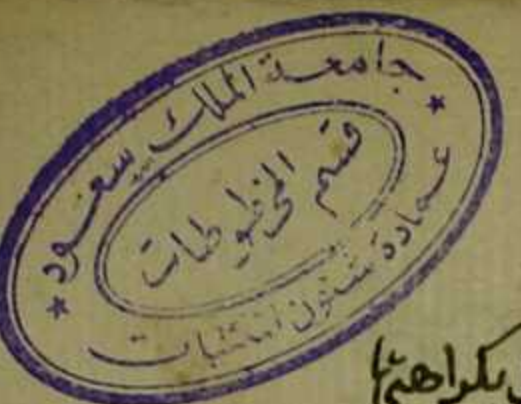 جامعة الملك سعود
قسم المخطوطات
عمادة شئون المكتبات
بكراهتها